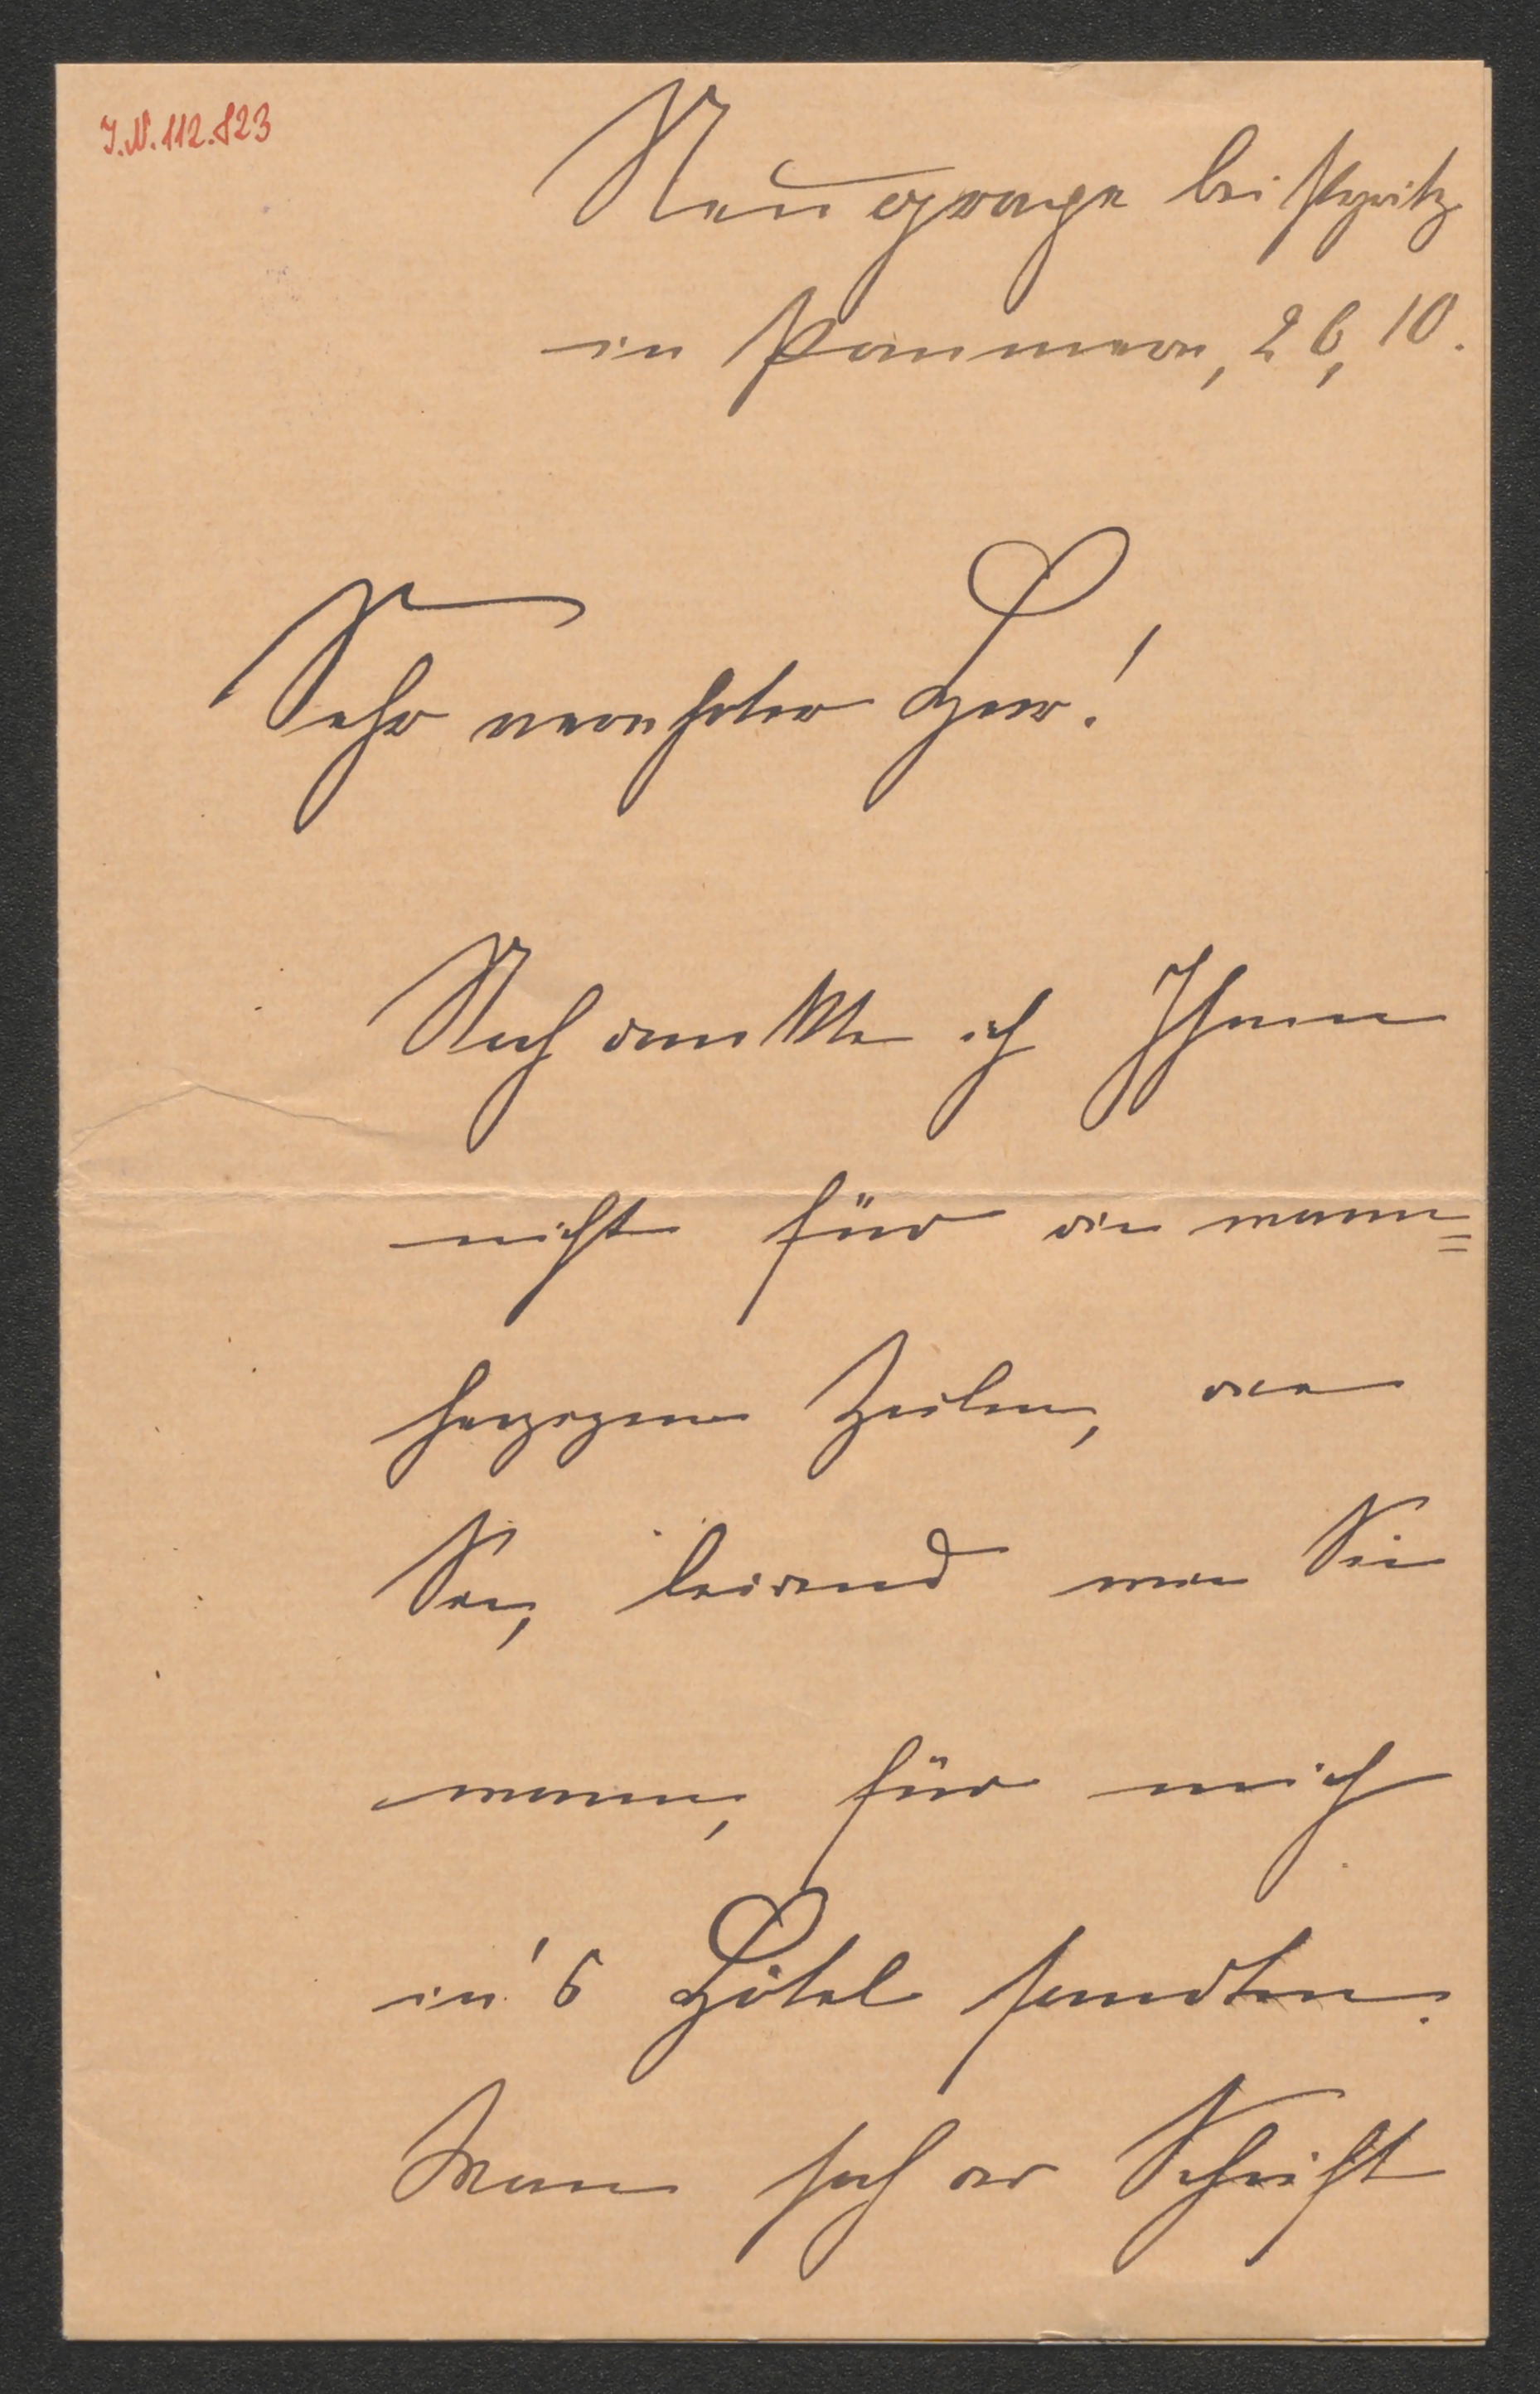 J.N. 112.823
Neugrape bei Pyritz
in Pommern, 26, 10.
Sehr verehrter Herr!
Noch dankte ich Ihnen
nicht für die warm-
herzigen Zeilen, die
Sie, leidend wie Sie
waren, für mich
in's Hôtel sandten.
Man sah der Schrift